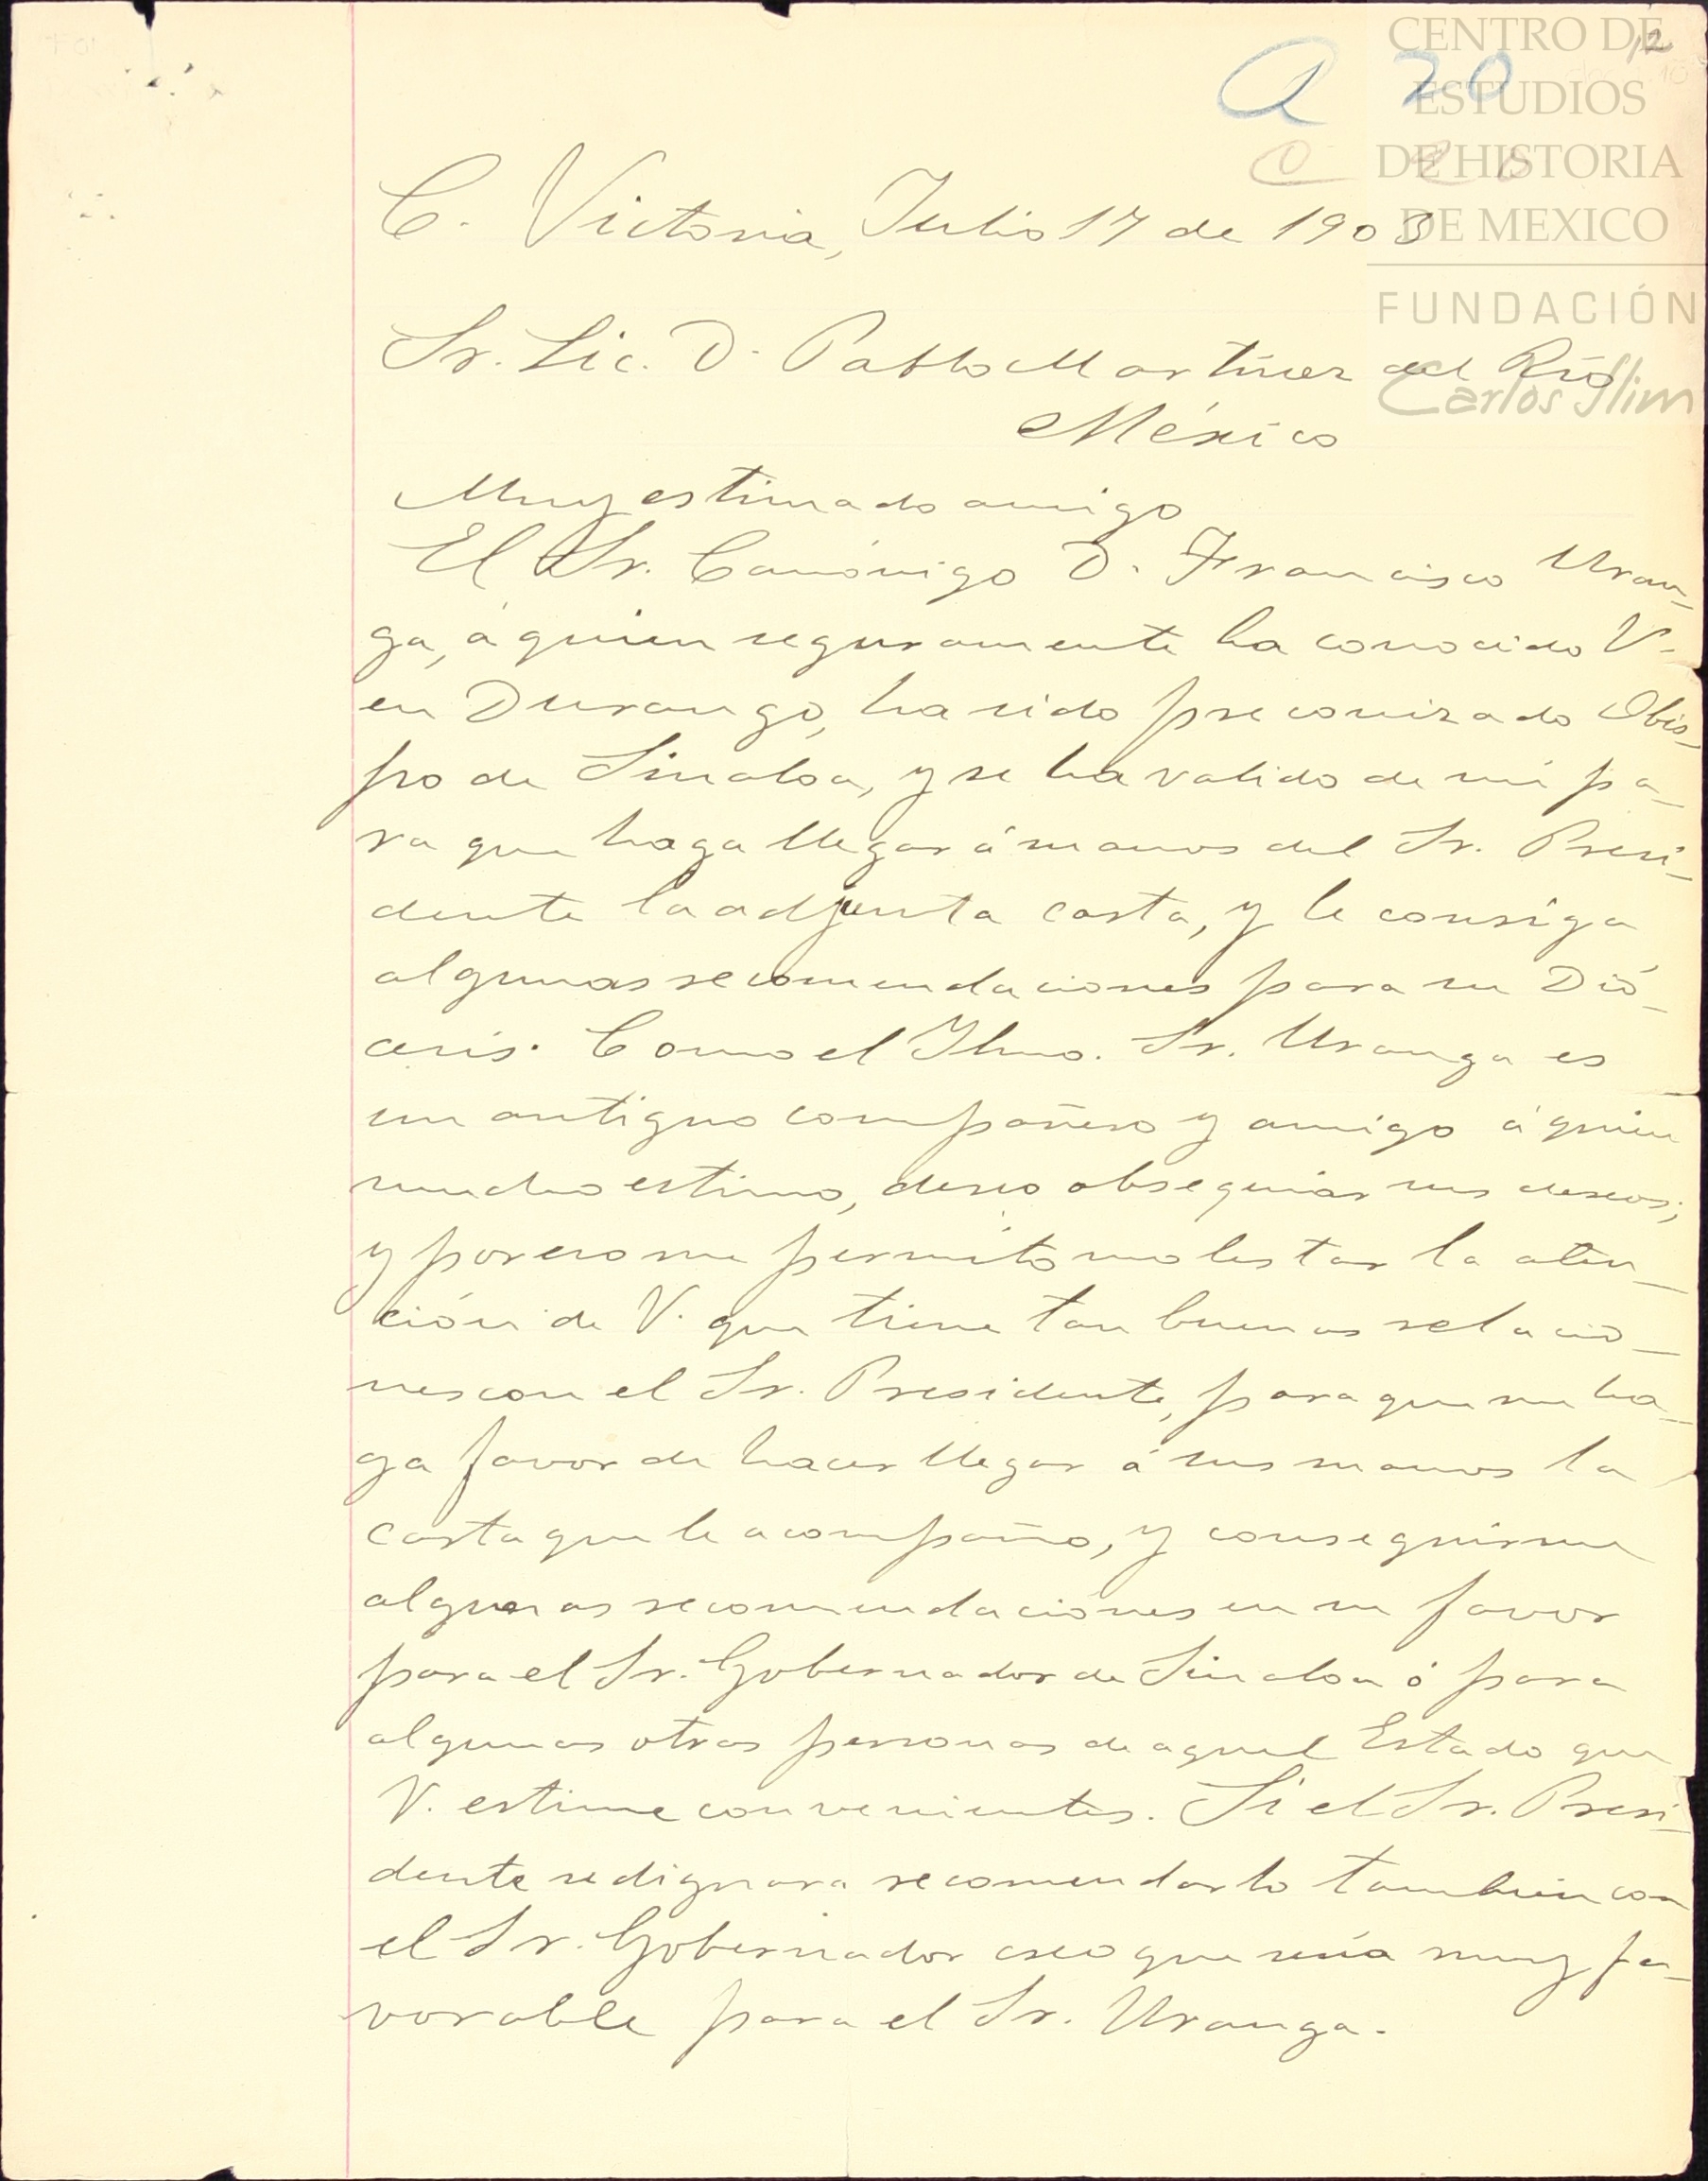 CENTRO DE
ESTUDIOS
DE HISTORIA
DE MEXICO
FUNDACIÓN
Carlos Slim
12
A 20
C. Victoria, Julio 17 de 1903
Sr. Lic. D. Pablo Martínez del Río
México
Muy estimado amigo
El Sr. Canónigo D. Francisco Uran-
ga, á quien seguramente ha conocido V.
en Durango, ha sido preconizado Obis-
po de Sinaloa, y se ha valido de mí pa-
ra que haga llegar á manos del Sr. Presi-
dente la adjunta carta, y le consiga
algunas recomendaciones para su Dió-
cesis. Como el Ilmo. Sr. Uranga es
un antiguo compañero y amigo á quien
mucho estimo, deseo obsequiar sus deseos;
y por eso me permito molestar la aten-
ción de V. que tiene tan buenas relacio-
nes con el Sr. Presidente, para que me ha-
ga favor de hacer llegar á sus manos la
carta que le acompaño, y conseguirme
algunas recomendaciones en su favor
para el Sr. Gobernador de Sinaloa ó para
algunas otras personas de aquel Estado que
V. estime convenientes. Si el Sr. Presi-
dente se dignara recomendarlo también con
el Sr. Gobernador creo que sería muy fa-
vorable para el Sr. Uranga.